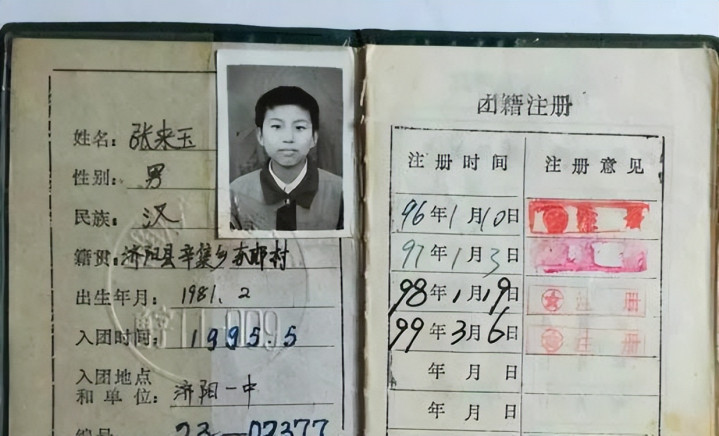 姓名：张来玉
性别：男
民族：汉
籍贯：济阳县辛集乡东郎村
出生年月：1981.2
入团时间：1995.5
入团地点
和单位：济阳一中
编号 23—02377
团籍注册
注册时间 注册意见
96年1月10日
97年1月3日
98年1月19日 注册
99年3月6日 注册
年 月 日
年 月 日